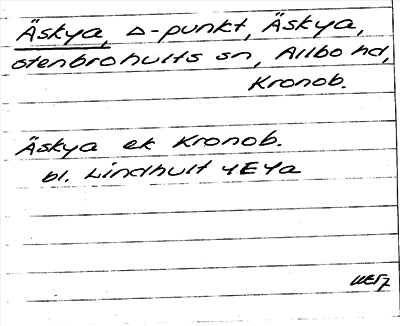 Äskya, Δ-punkt, Äskya,
Stenbrohults sn, Allbo hd,
Kronob.
Äskya ek Kronob.
bl. Lindhult 4E4a